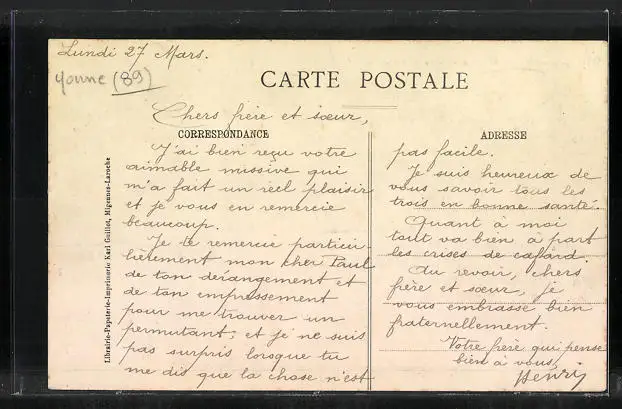 Lundi 27 Mars.
Yonne (89)
CARTE POSTALE
Chers frère et sœur,
CORRESPONDANCE
J'ai bien reçu votre
aimable missive qui
m'a fait un réel plaisir
et je vous en remercie
beaucoup.
Je te remercie particu-
lièrement mon cher Paul
de ton dérangement et
de ton empressement
pour me trouver un
permutant; et je ne suis
pas surpris lorsque tu
me dis que la chose n'est
ADRESSE
pas facile.
Je suis heureux de
vous savoir tous les
trois en bonne santé.
Quant à moi
tout va bien à part
les crises de cafard.
Au revoir, chers
frère et sœur, je
vous embrasse bien
fraternellement.
Votre frère qui pense
bien à vous,
Henri
Librairie-Papeterie-Imprimerie Karl Guillot, Migennes-Laroche